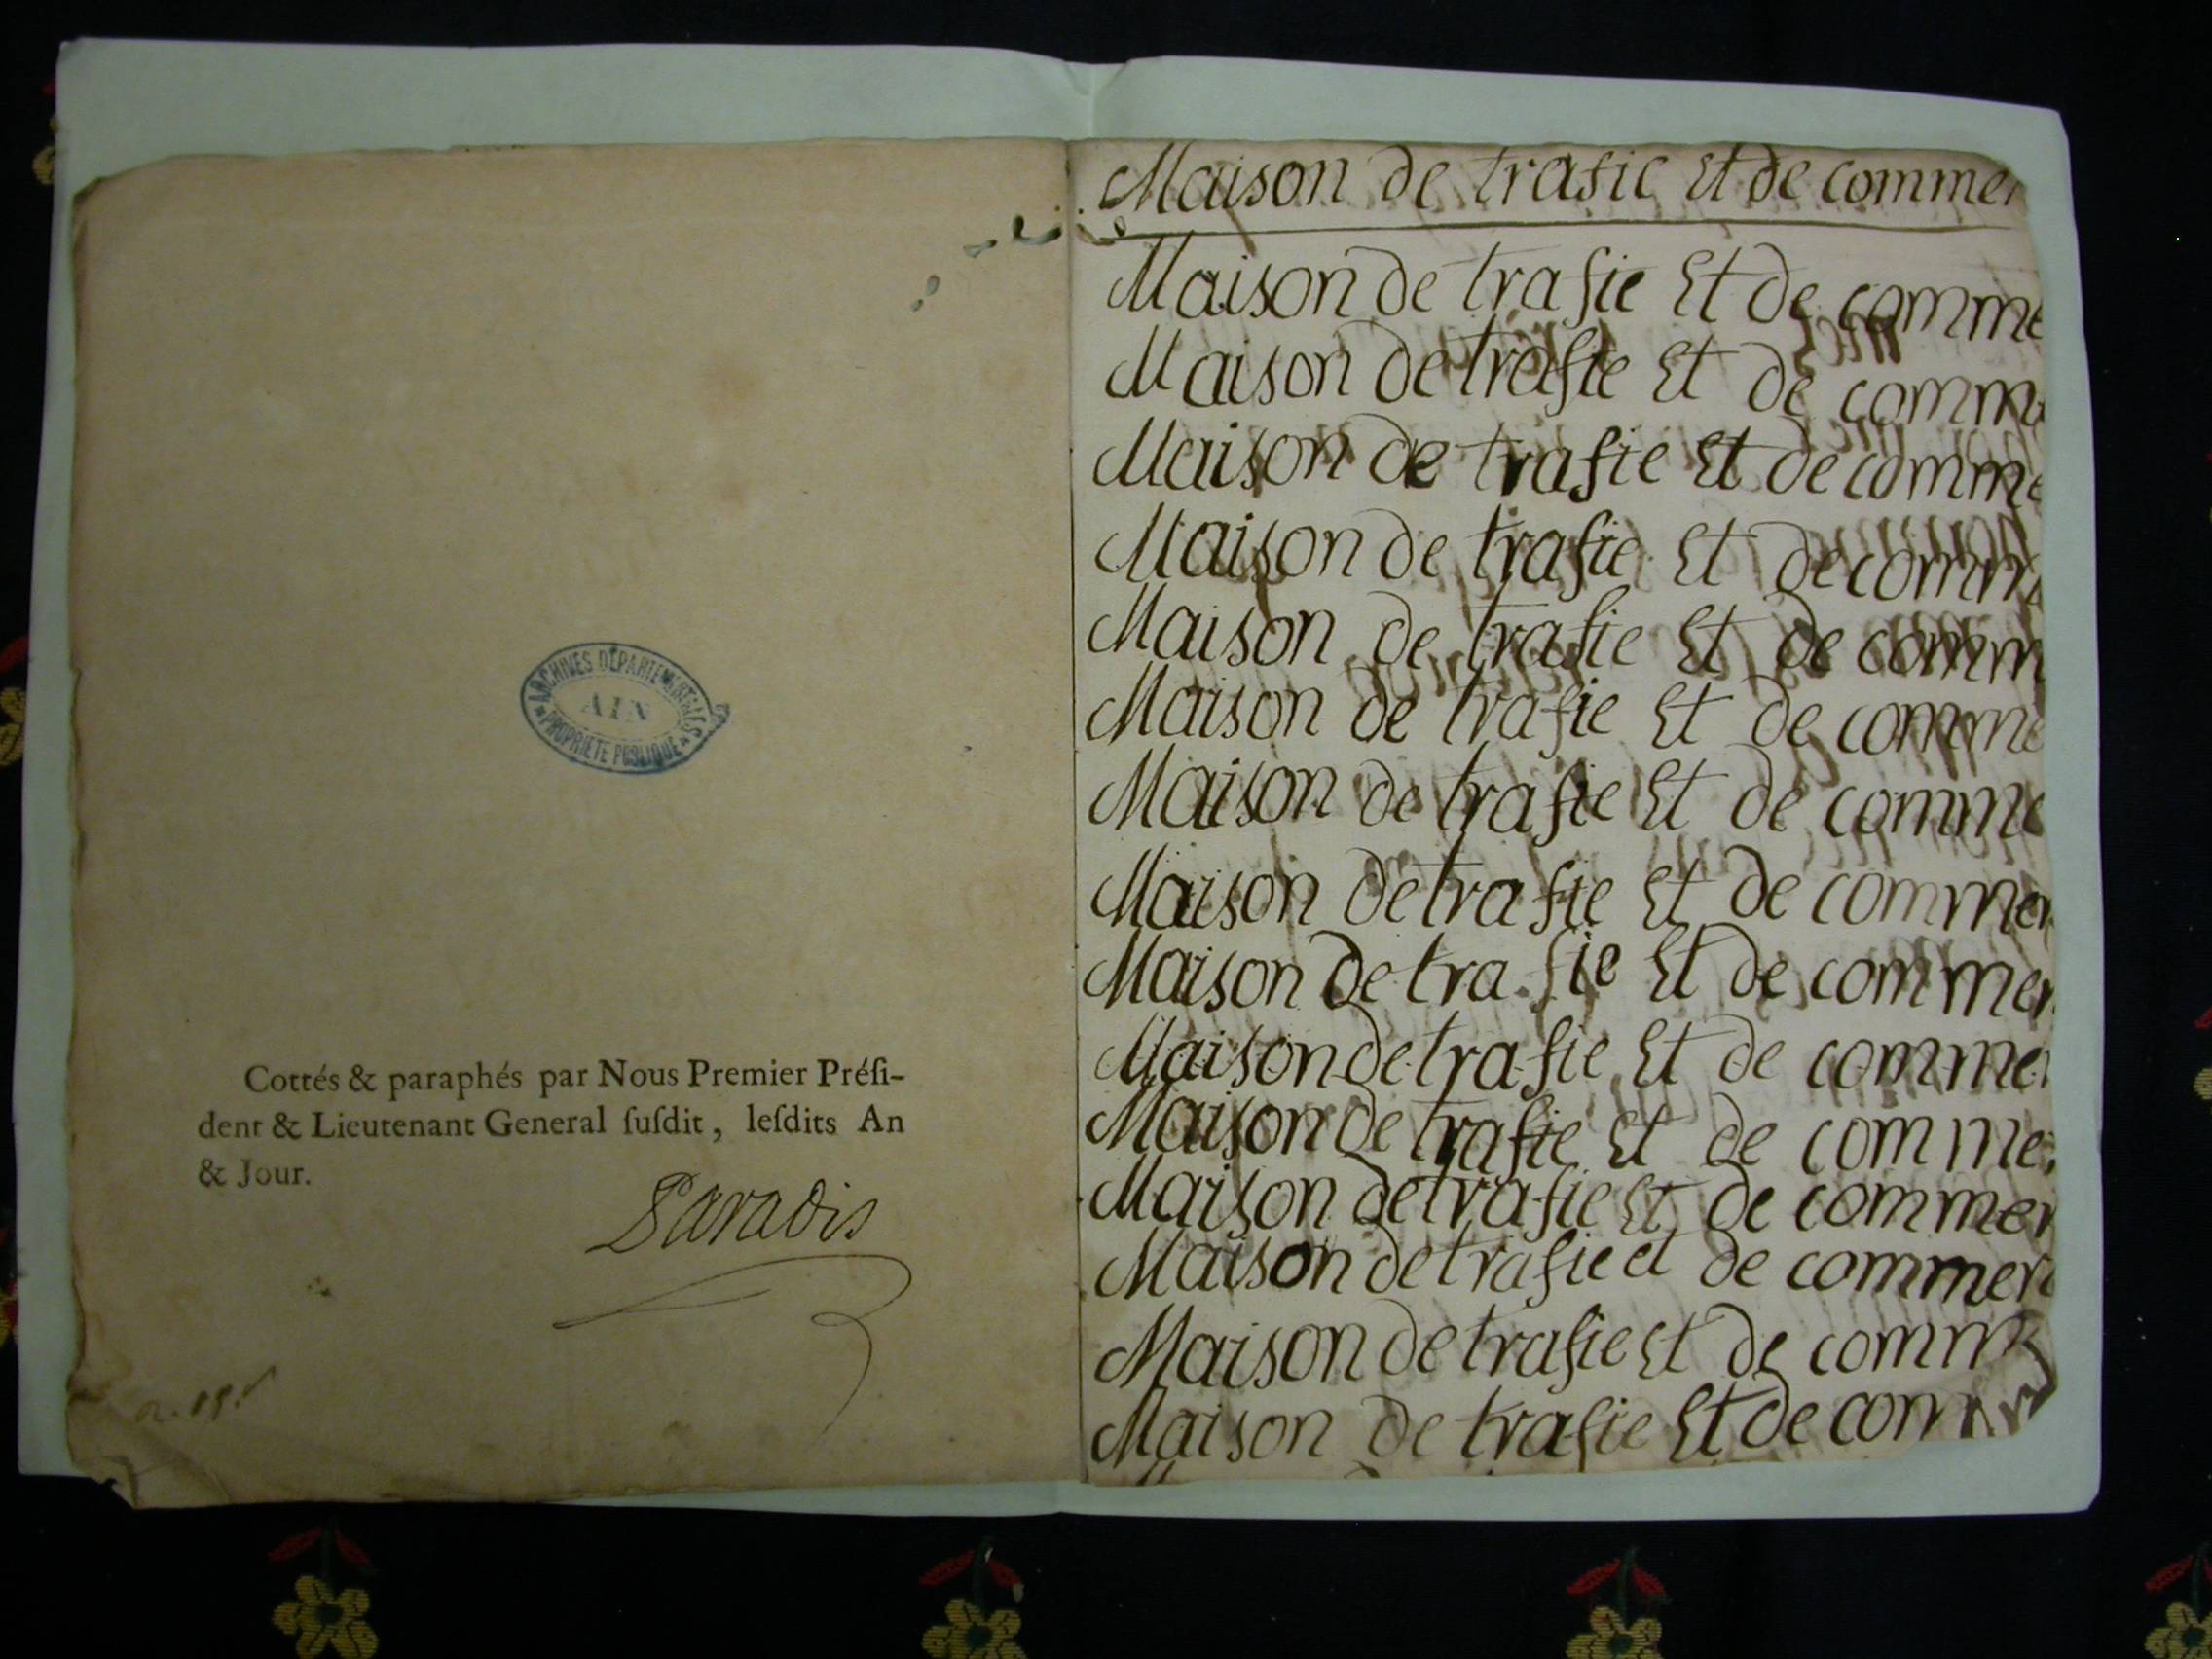 ARCHIVES DÉPARTEMENTALES
AIN
PROPRIÉTÉ PUBLIQUE
Cottés & paraphés par Nous Premier Préſi-
dent & Lieutenant General ſuſdit, leſdits An
& Jour.
Paradis
Maison de trafic Et de commer
Maison de trafie Et de comme
Maison de trafie Et de comme
Maison de trafie Et de comme
Maison de trafie Et de comme
Maison de trafie Et de comm
Maison de trafie Et de comme
Maison de trafie Et de comme
Maison de trafie Et de commer
Maison de trafie Et de commer
Maison de trafie Et de commer
Maison de trafie Et de comme
Maison de trafie Et de commer
Maison de trafie et de commerc
Maison de trafie Et de comm
Maison de trafie Et de comm